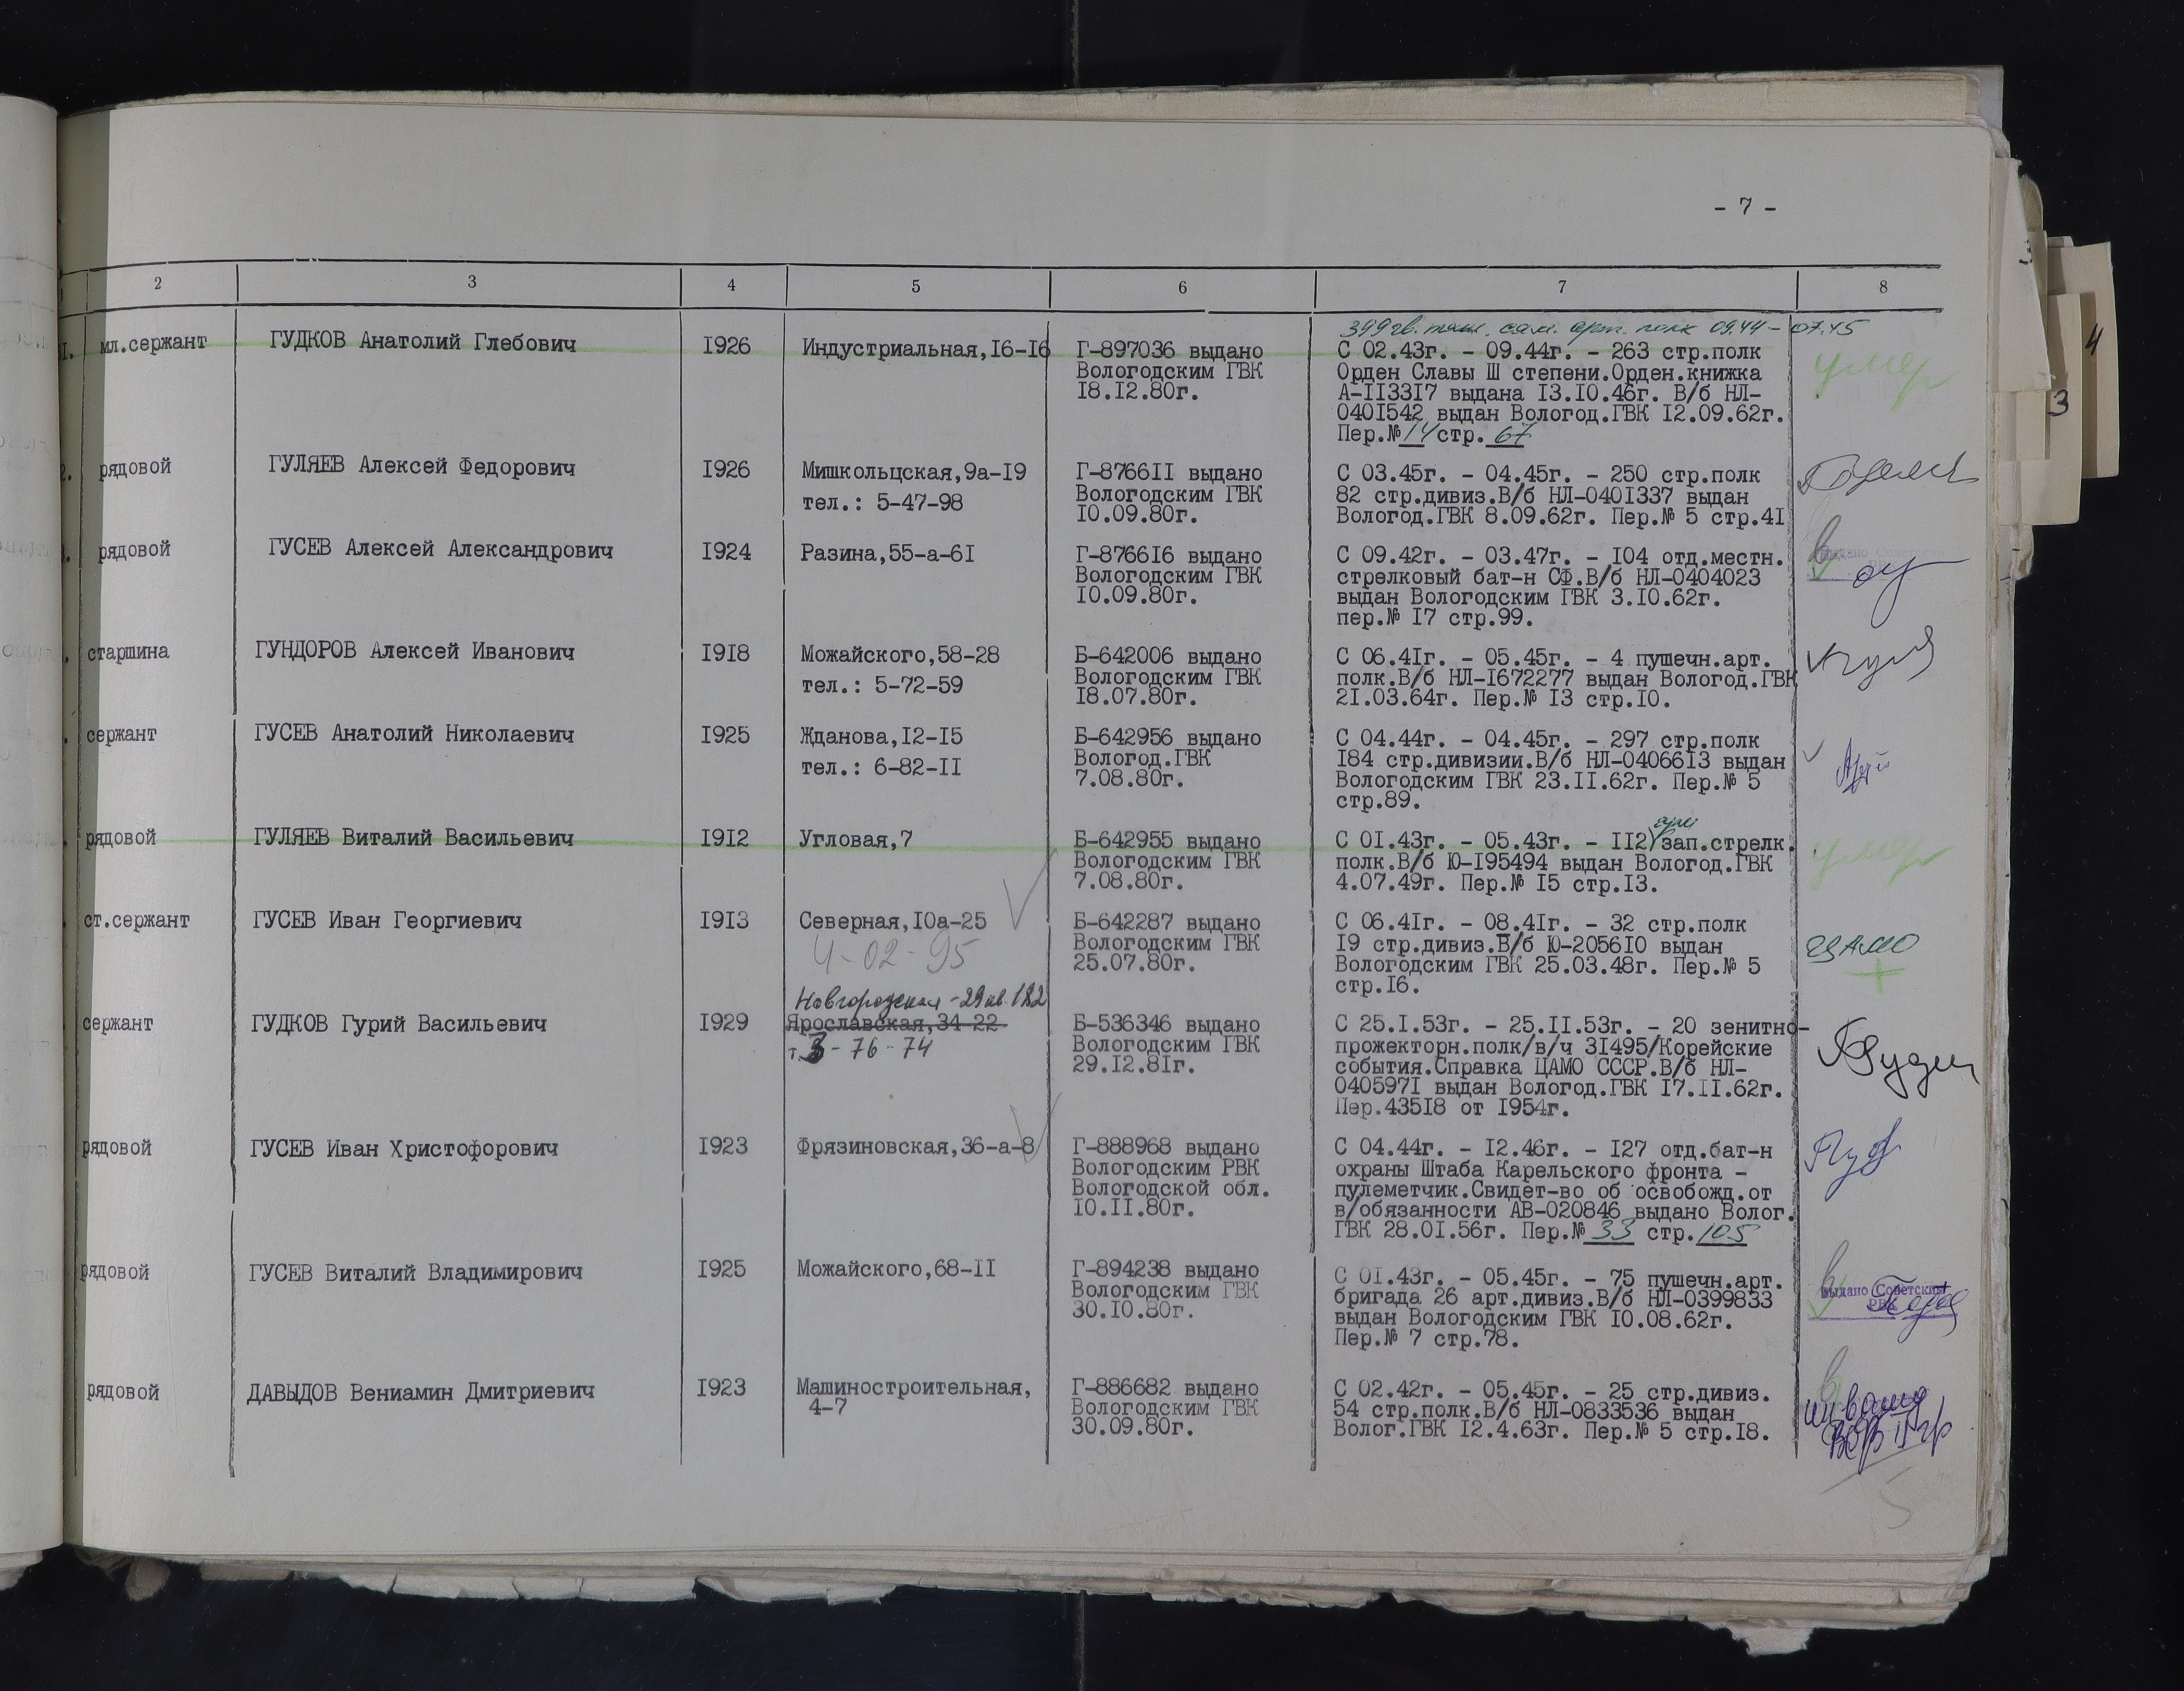 - 7 -
2 3 4 5 6 7 8
399 гв. тяж. сам. арт. полк 09.44 - 07.45
1. мл.сержант ГУДКОВ Анатолий Глебович 1926 Индустриальная,16-16 Г-897036 выдано С 02.43г. - 09.44г. - 263 стр.полк умер
Вологодским ГВК Орден Славы Ш степени.Орден.книжка
18.12.80г. А-113317 выдана 13.10.46г. В/б НЛ-
0401542 выдан Вологод.ГВК 12.09.62г.
Пер.№ 14 стр. 67
2. рядовой ГУЛЯЕВ Алексей Федорович 1926 Мишкольцская,9а-19 Г-876611 выдано С 03.45г. - 04.45г. - 250 стр.полк
тел.: 5-47-98 Вологодским ГВК 82 стр.дивиз.В/б НЛ-0401337 выдан
10.09.80г. Вологод.ГВК 8.09.62г. Пер.№ 5 стр.41
рядовой ГУСЕВ Алексей Александрович 1924 Разина,55-а-61 Г-876616 выдано С 09.42г. - 03.47г. - 104 отд.местн. выдано Советским
Вологодским ГВК стрелковый бат-н СФ.В/б НЛ-0404023
10.09.80г. выдан Вологодским ГВК 3.10.62г.
пер.№ 17 стр.99.
старшина ГУНДОРОВ Алексей Иванович 1918 Можайского,58-28 Б-642006 выдано С 06.41г. - 05.45г. - 4 пушечн.арт.
тел.: 5-72-59 Вологодским ГВК полк.В/б НЛ-1672277 выдан Вологод.ГВК
18.07.80г. 21.03.64г. Пер.№ 13 стр.10.
сержант ГУСЕВ Анатолий Николаевич 1925 Жданова,12-15 Б-642956 выдано С 04.44г. - 04.45г. - 297 стр.полк
тел.: 6-82-11 Вологод.ГВК 184 стр.дивизии.В/б НЛ-0406613 выдан
7.08.80г. Вологодским ГВК 23.11.62г. Пер.№ 5
стр.89.
рядовой ГУЛЯЕВ Виталий Васильевич 1912 Угловая,7 Б-642955 выдано С 01.43г. - 05.43г. - 112 зап.стрелк. умер
Вологодским ГВК полк.В/б Ю-195494 выдан Вологод.ГВК
7.08.80г. 4.07.49г. Пер.№ 15 стр.13.
ст.сержант ГУСЕВ Иван Георгиевич 1913 Северная,10а-25 Б-642287 выдано С 06.41г. - 08.41г. - 32 стр.полк
4-02-95 Вологодским ГВК 19 стр.дивиз.В/б Ю-205610 выдан ЦАМО
25.07.80г. Вологодским ГВК 25.03.48г. Пер.№ 5 +
стр.16.
Новгородская - 29 кв. 182
сержант ГУДКОВ Гурий Васильевич 1929 Ярославская,34-22 Б-536346 выдано С 25.1.53г. - 25.11.53г. - 20 зенитно-
т. 3-76-74 Вологодским ГВК прожекторн.полк/в/ч 31495/Корейские
29.12.81г. события.Справка ЦАМО СССР.В/б НЛ-
0405971 выдан Вологод.ГВК 17.11.62г.
Пер.43518 от 1954г.
рядовой ГУСЕВ Иван Христофорович 1923 Фрязиновская,36-а-8 Г-888968 выдано С 04.44г. - 12.46г. - 127 отд.бат-н
Вологодским РВК охраны Штаба Карельского фронта -
Вологодской обл. пулеметчик.Свидет-во об освобожд.от
10.11.80г. в/обязанности АВ-020846 выдано Волог.
ГВК 28.01.56г. Пер.№ 33 стр. 105
рядовой ГУСЕВ Виталий Владимирович 1925 Можайского,68-11 Г-894238 выдано С 01.43г. - 05.45г. - 75 пушечн.арт. выдано Советским
Вологодским ГВК бригада 26 арт.дивиз.В/б НЛ-0399833 РВК
30.10.80г. выдан Вологодским ГВК 10.08.62г.
Пер.№ 7 стр.78.
рядовой ДАВЫДОВ Вениамин Дмитриевич 1923 Машиностроительная, Г-886682 выдано С 02.42г. - 05.45г. - 25 стр.дивиз.
4-7 Вологодским ГВК 54 стр.полк.В/б НЛ-0833536 выдан инвалид
30.09.80г. Волог.ГВК 12.4.63г. Пер.№ 5 стр.18. ВОВ II гр
4
3